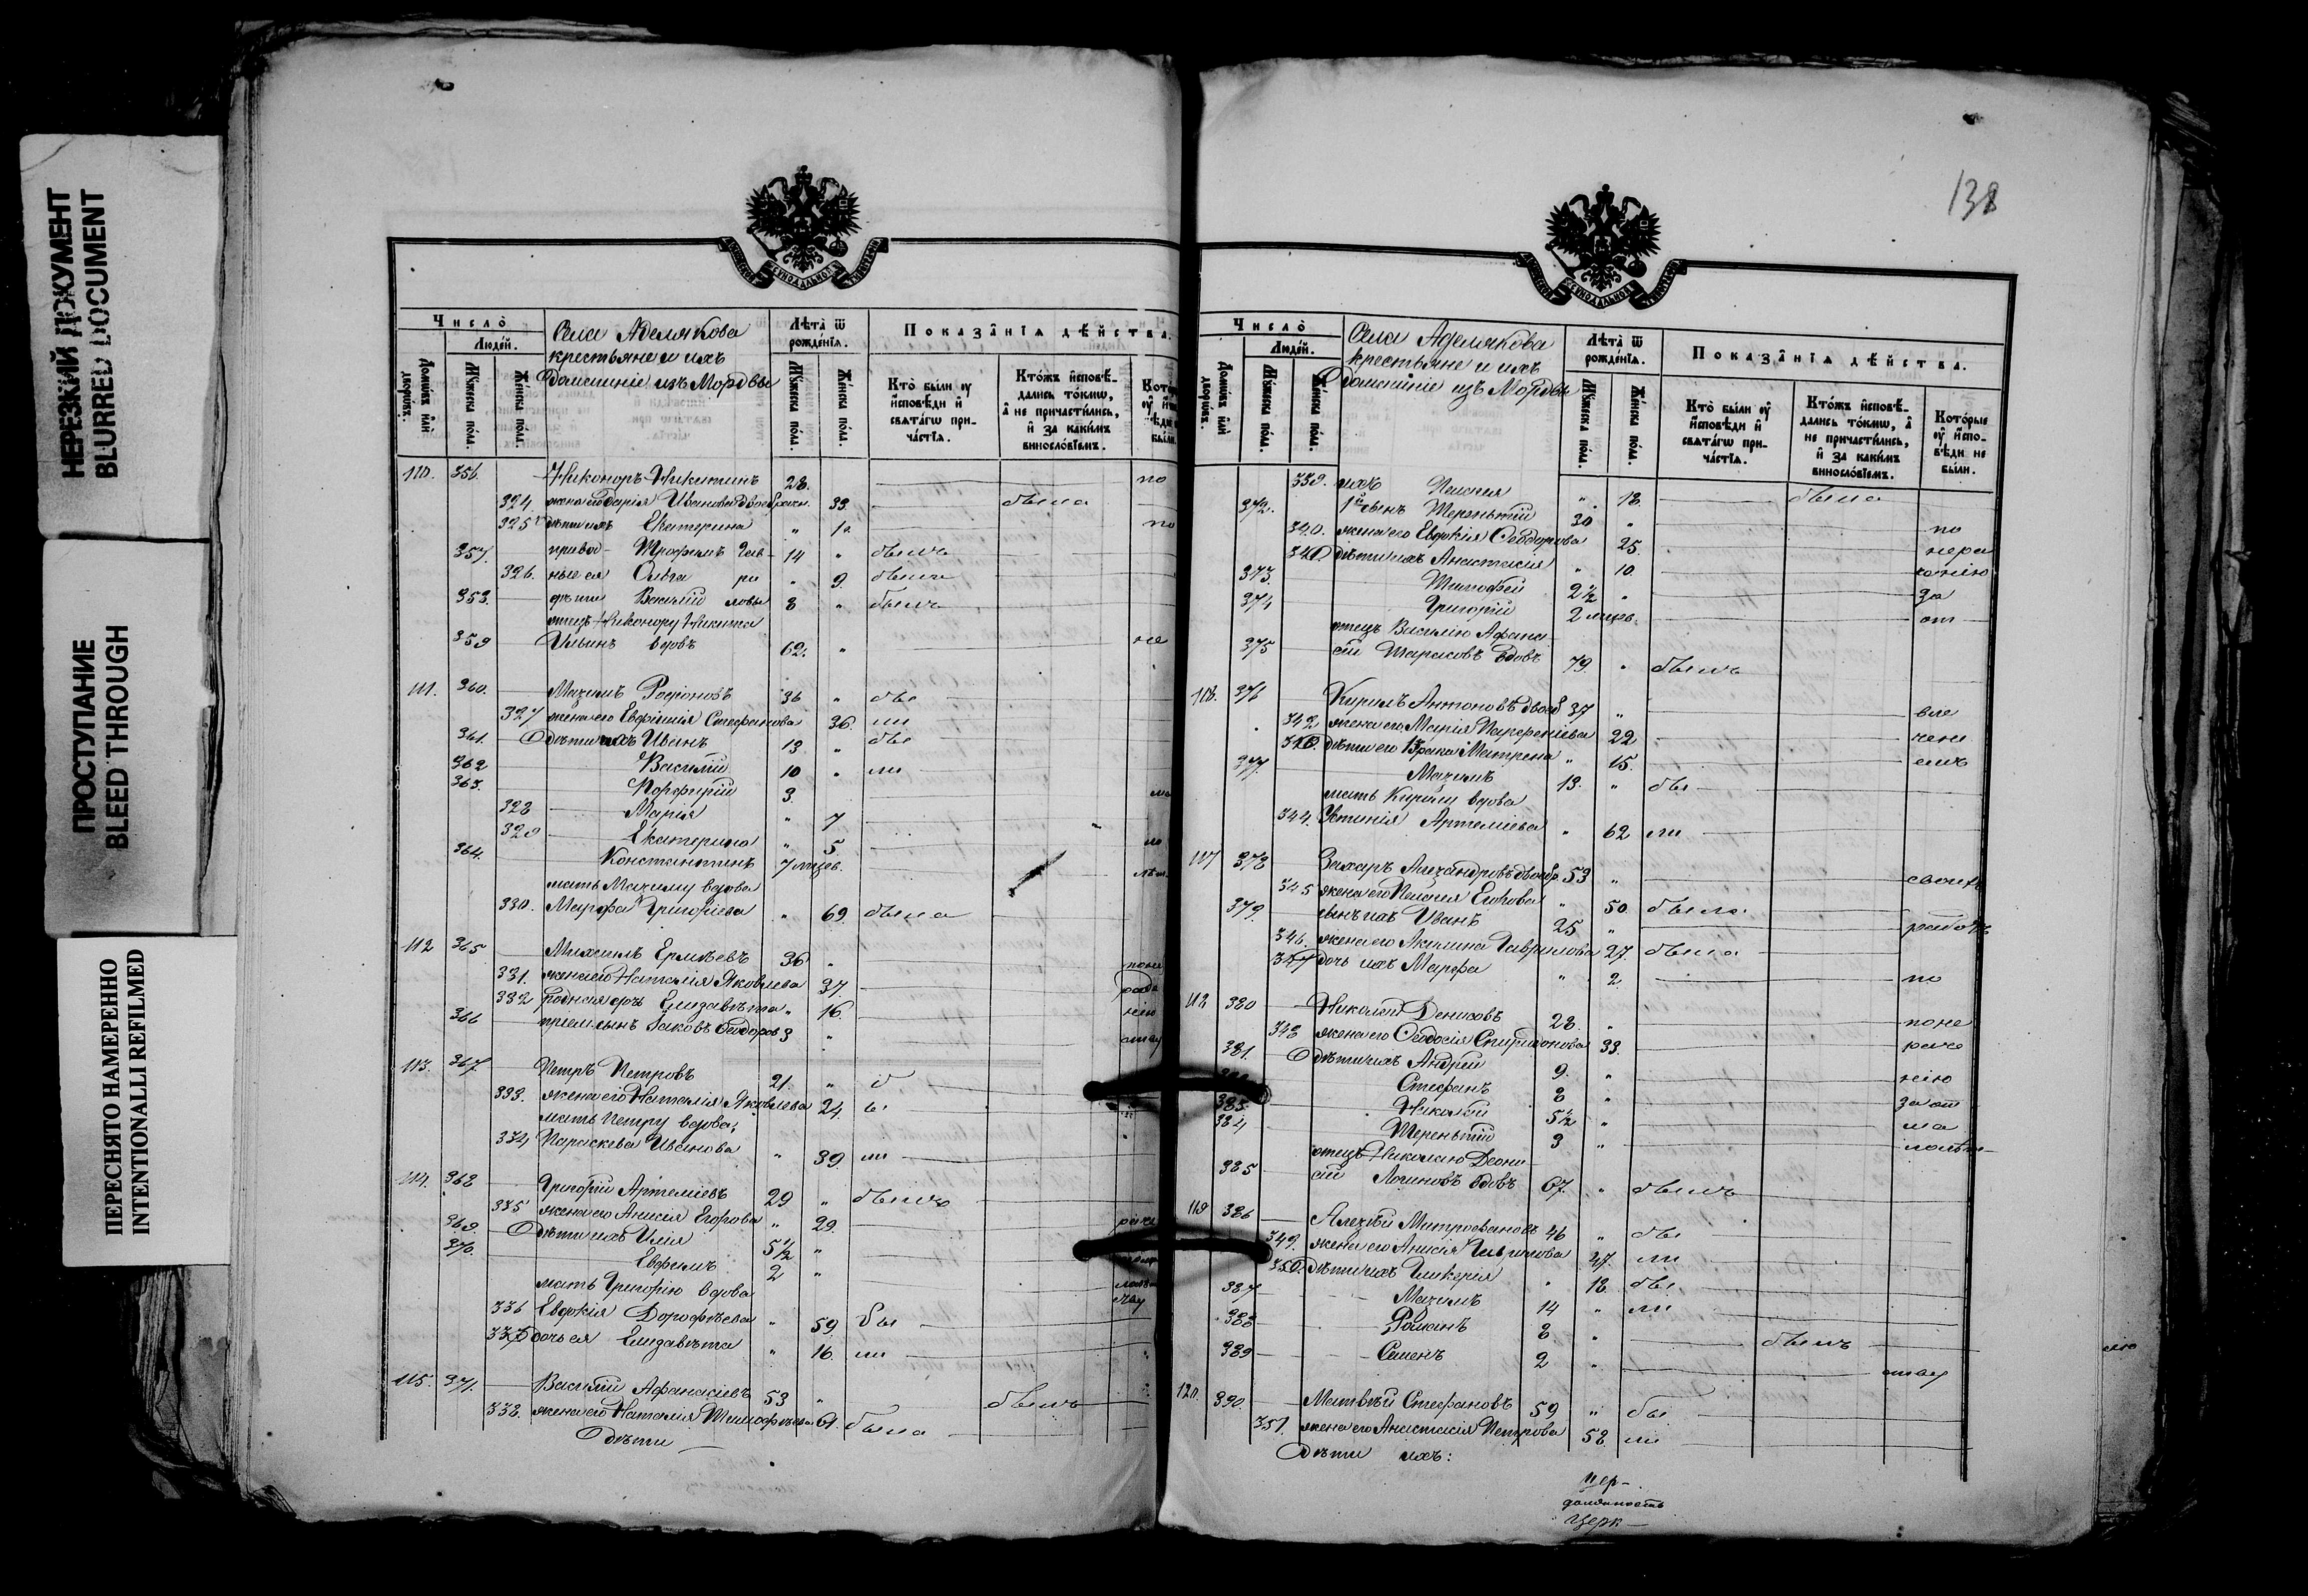 НЕРЕЗКИЙ ДОКУМЕНТ
BLURRED DOCUMENT
ПРОСТУПАНИЕ
BLEED THROUGH
ПЕРЕСНЯТО НАМЕРЕННО
INTENTIONALLI REFILMED
Число̀
Людей.
Домѡвъ или дворѡвъ.
Мꙋжеска пола.
Женска пола.
Села Аделякова
крестьяне и ихъ
домашніе изъ Мордвы
Лѣта ѿ рожденїѧ.
Мꙋжеска пола.
Женска пола.
Показанїѧ дѣйства.
Кто были оу исповѣди и свѧтагѡ причастїѧ.
Ктожъ исповѣдались токмѡ, а не причастились, и за какимъ винословїемъ.
110. 356. Никоноръ Никитинъ 28. по
324 жена его Дарія Иванова двоебрачн. 33. была
325 дѣти ихъ Екатерина " 1 по
357. привод- Трофимъ Гав- 14 " былъ
326. ные ея Ольга ри " 9. была
358. дѣти Василій ловы 8 " былъ
отецъ Никонору Никита
359 Ильинъ вдовъ 62. " не
111. 360. Максимъ Родіоновъ 36 " бы
327 жена его Евфимія Стефанова 36. ли
361. дѣти ихъ Иванъ 13 " бы
362 Василій 10 " ли
363. Порфирій 3. ма
328 Марія " 7
329 Екатерина " 5
364. Константинъ 7 мцев.
мать Максиму вдова
330. Марфа Григоріева " 69. была
112 365 Михаилъ Ермѣевъ 36 "
331. жена его Наталія Яковлева 37.
332 родная дочь Елизавета " 16.
366 пріем. сынъ Іаковъ Ѳеодоров 3 "
113. 367. Петръ Петровъ 21. " б
333. жена его Наталія Яковлева 24. ы
мать Петру вдова
334 Параскева Иванова " 39. ли
114. 368 Григорій Артеміевъ 29 " былъ
335 жена его Анисія Егорова " 29.
369. дѣти ихъ Илія 5½ "
370. Евфимъ 2 "
мать Григорію вдова
336 Евдокія Дорофѣева " 59 бы
337 дочь ея Елизавета " 16. ли
115. 371. Василій Афанасіевъ 53 " былъ
338. жена его Наталія Тимофѣева 61. была
дѣти
138
Число̀
Людей.
Домѡвъ или дворѡвъ.
Мꙋжеска пола.
Женска пола.
Села Аделякова
крестьяне и ихъ
домашніе изъ Мордвы
Лѣта ѿ рожденїѧ.
Мꙋжеска пола.
Женска пола.
Показанїѧ дѣйства.
Кто были оу исповѣди и свѧтагѡ причастїѧ.
Ктожъ исповѣдались токмѡ, а не причастились, и за какимъ винословїемъ.
Которые оу исповѣди не были.
339. ихъ Пелагія " 18. была
372. 1й сынъ Терентій 30 " по
340. жена его Евдокія Ѳеодорова 25. нера
341 дѣти ихъ Анастасія " 10.
373. Тимофей 2½ " за
374 Григорій 2 мцев. от
отецъ Василію Афана-
375 сій Тарасовъ вдовъ 79. " былъ
116. 376 Кирилъ Антоновъ двоеб 37 "
342 жена его Марія Парфеніева 22
343 дѣти его 1 брака Матрена " 15.
377. Максимъ 13. " бы
мать Кирилу вдова
344. Устинія Артеміева " 62 ли
117 378 Захаръ Александровъ двоебр. 53 "
345 жена его Пелагія Егорова " 50. была
379. сынъ ихъ Иванъ 25 "
346. жена его Акилина Гаврилова 27. была
347 дочь ихъ Марфа " 2 по
118 380 Николай Денисовъ 28. " по не
348 жена его Ѳеодосія Спиридонова 33. раче
381. дѣти ихъ Андрей 9. " нію
Стефанъ 8 " за от
383. Николай 5½ "
384 Терентій 3 "
отецъ Николаю Діони-
385 сій Логиновъ вдовъ 67. " былъ
119 386 Алексѣй Митрофановъ 46 " бы
349. жена его Анисія Гаврилова 47. ли
350. дѣти ихъ Гликерія " 18. бы
387 Максимъ 14 " ли
388 Романъ 8 " былъ
389 Семенъ 2 "
120. 390. Матвѣй Стефановъ 59 " бы
351. жена его Анастасія Петрова 58. ли
Дѣти ихъ: